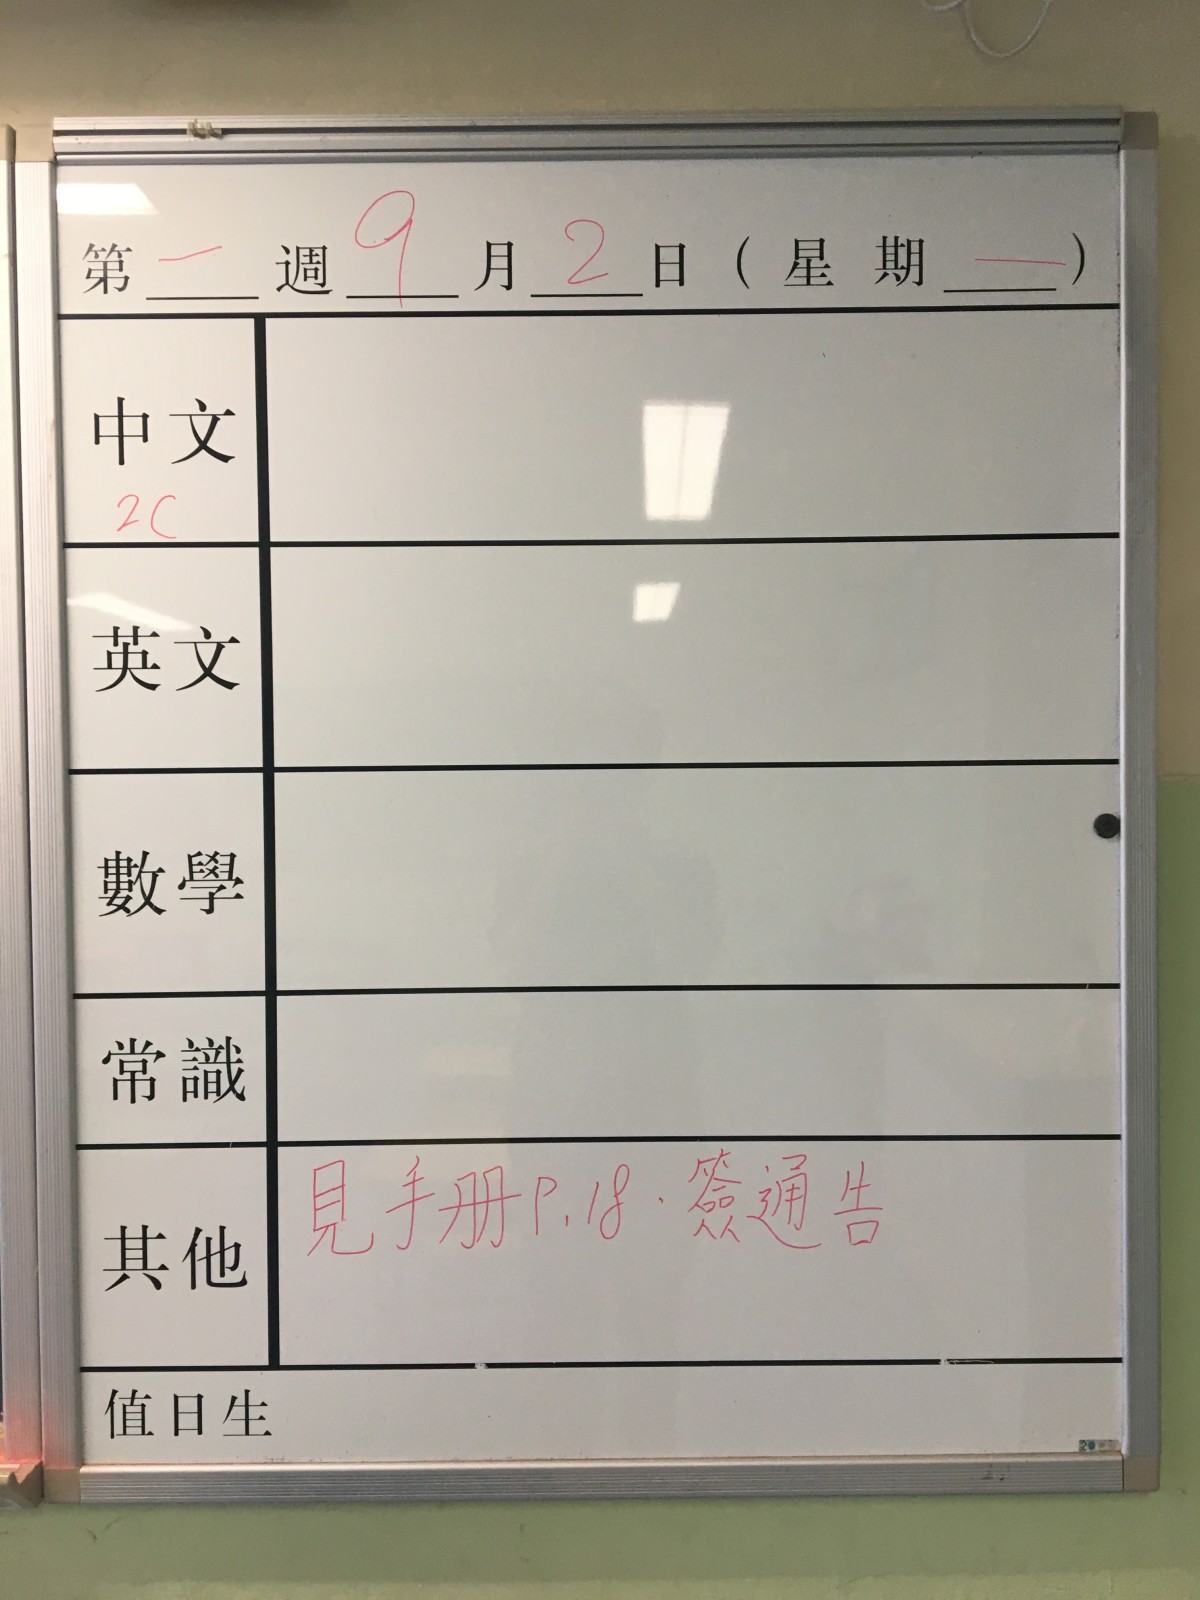 第一週9月2日(星期一)
中文
2C
英文
數學
常識
其他
見手册P.18.簽通告
值日生